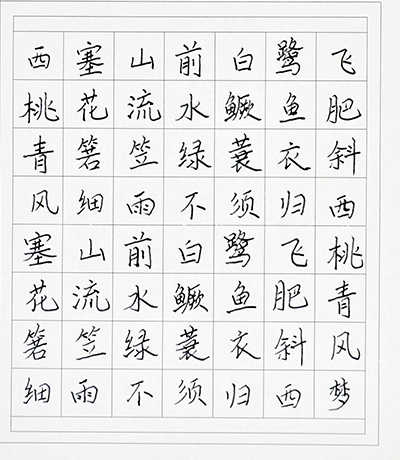 西塞山前白鹭飞
桃花流水鳜鱼肥
青箬笠绿蓑衣斜
风细雨不须归西
塞山前白鹭飞桃
花流水鳜鱼肥青
箬笠绿蓑衣斜风
细雨不须归西梦